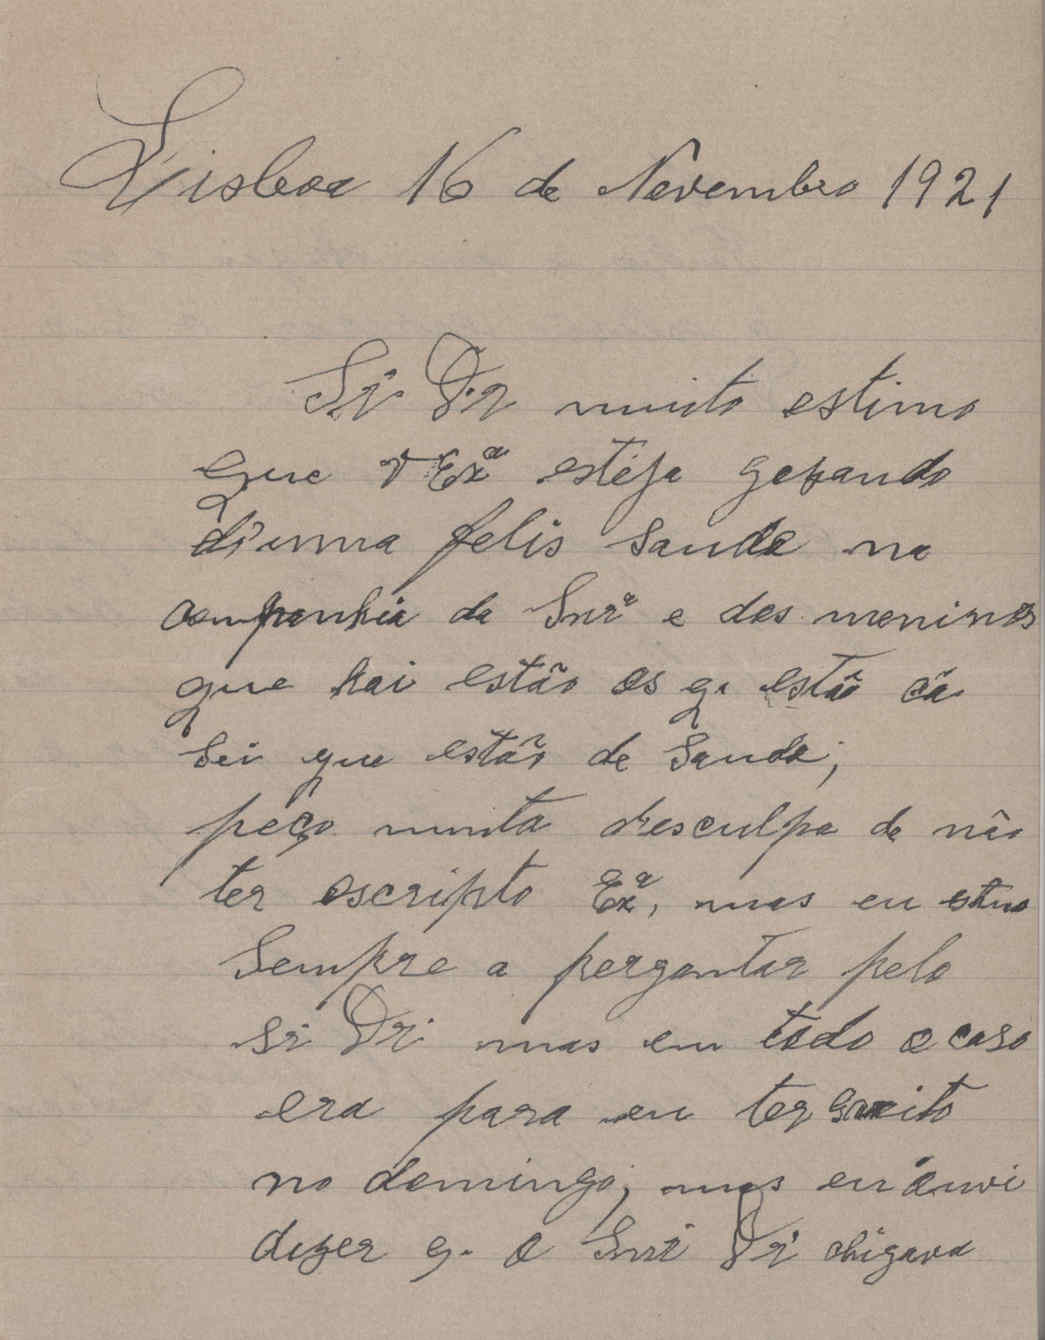 Lisboa 16 de Novembro 1921
Sr. Dr muito estimo
que V Exª estêja gosando
d'uma felis Saude na
companhia da Snrª e dos meninos
que hai estão os q. estão cá
sei que estão de Saude;
peço munta desculpa de não
ter escripto Exª, mas eu estou
Sempre a pergontar pelo
Sr Dr. mas em todo o caso
era para eu ter escrito
no domingo; mas eu ouvi
dizer q. o Snr Dr chigava